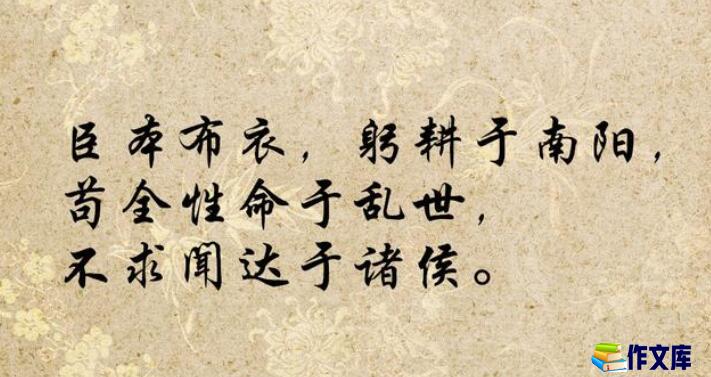 臣本布衣，躬耕于南阳，
苟全性命于乱世，
不求闻达于诸侯。
作文库